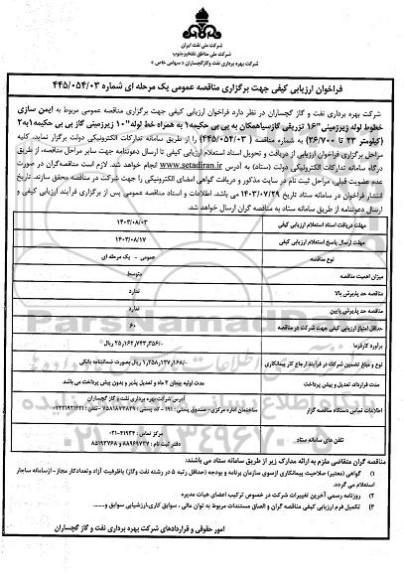 شرکت ملی نفت ایران
شرکت ملی مناطق نفتخیز جنوب
شرکت بهره برداری نفت و گاز گچساران (سهامی خاص)
فراخوان ارزیابی کیفی جهت برگزاری مناقصه عمومی یک مرحله ای شماره ۴۴۵/۰۵۴/۰۳
شرکت بهره برداری نفت و گاز گچساران در نظر دارد فراخوان ارزیابی کیفی جهت برگزاری مناقصه عمومی مربوط به ایمن سازی
خطوط لوله زیرزمینی "۱۶ تزریقی گازسیاهمکان به بی بی حکیمه۱ به همراه خط لوله "۱۰ زیرزمینی گاز بی بی حکیمه۱به۲
(کیلومتر ۲۳ تا ۲۶/۷۰۰) به شماره مناقصه (۴۴۵/۰۵۴/۰۳) را از طریق سامانه تدارکات الکترونیکی دولت برگزار نماید. کلیه
مراحل برگزاری فراخوان ارزیابی از دریافت و تحویل اسناد استعلام ارزیابی کیفی تا ارسال دعوتنامه جهت سایر مراحل مناقصه، از طریق
درگاه سامانه تدارکات الکترونیکی دولت (ستاد) به آدرس www.setadiran.ir انجام خواهد شد. لازم است مناقصه‌گران در صورت
عدم عضویت قبلی، مراحل ثبت نام در سایت مذکور و دریافت گواهی امضای الکترونیکی را جهت شرکت در مناقصه محقق سازند. تاریخ
انتشار فراخوان در سامانه ستاد تاریخ ۱۴۰۳/۰۷/۲۹ می باشد. اطلاعات و اسناد مناقصه عمومی پس از برگزاری فرآیند ارزیابی کیفی و
ارسال دعوتنامه از طریق سامانه ستاد به مناقصه گران ارسال خواهد شد.
مهلت دریافت اسناد استعلام ارزیابی کیفی ۱۴۰۳/۰۸/۰۳
مهلت ارسال پاسخ استعلام ارزیابی کیفی ۱۴۰۳/۰۸/۱۷
نوع مناقصه عمومی - یک مرحله ای
میزان اهمیت مناقصه متوسط
مناقصه حد پذیرش بالا ندارد
مناقصه حد پذیرش پایین ندارد
حداقل امتیاز ارزیابی کیفی جهت شرکت در مناقصه ۶۰
برآورد کارفرما ۲۵,۱۶۲,۷۴۳,۳۵۶/- ریال
نوع و مبلغ تضمین شرکت در فرآیند ارجاع کار پیمانکاری ۱,۲۵۸,۱۳۷,۱۶۸/- ریال بصورت ضمانتنامه بانکی
مدت قرارداد، تعدیل و پیش پرداخت مدت اولیه پیمان ۲ ماه و تعدیل پذیر و بدون پیش پرداخت می باشد
اطلاعات تماس دستگاه مناقصه گزار آدرس شرکت بهره برداری نفت و گاز گچساران
ساختمان اداره مرکزی - صندوق پستی : ۱۹۱
تلفن های سامانه ستاد مرکز تماس : ۰۲۱-۴۱۹۳۴
دفتر ثبت نام : ۸۸۹۶۹۷۳۷ و ۸۵۱۹۳۷۶۸
مناقصه گران متقاضی ملزم به ارائه مدارک زیر از طریق سامانه ستاد می باشند:
۱) گواهی (معتبر) صلاحیت پیمانکاری ازسوی سازمان برنامه و بودجه (حداقل رتبه ۵ در رشته نفت وگاز) باظرفیت آزاد وتعدادکار مجاز -ازسامانه ساجار
استعلام می گردد.
۲) روزنامه رسمی آخرین تغییرات شرکت در خصوص ترکیب اعضای هیات مدیره
۳) تکمیل فرم ارزیابی کیفی مناقصه گران و الصاق مستندات مربوط به توان مالی ، سوابق کاری،ارزشیابی سوابق و.....
امور حقوقی و قراردادهای شرکت بهره برداری نفت و گاز گچساران
ParsNamadData
۰۲۱-۸۸۳۴۹۶۷۰-۵